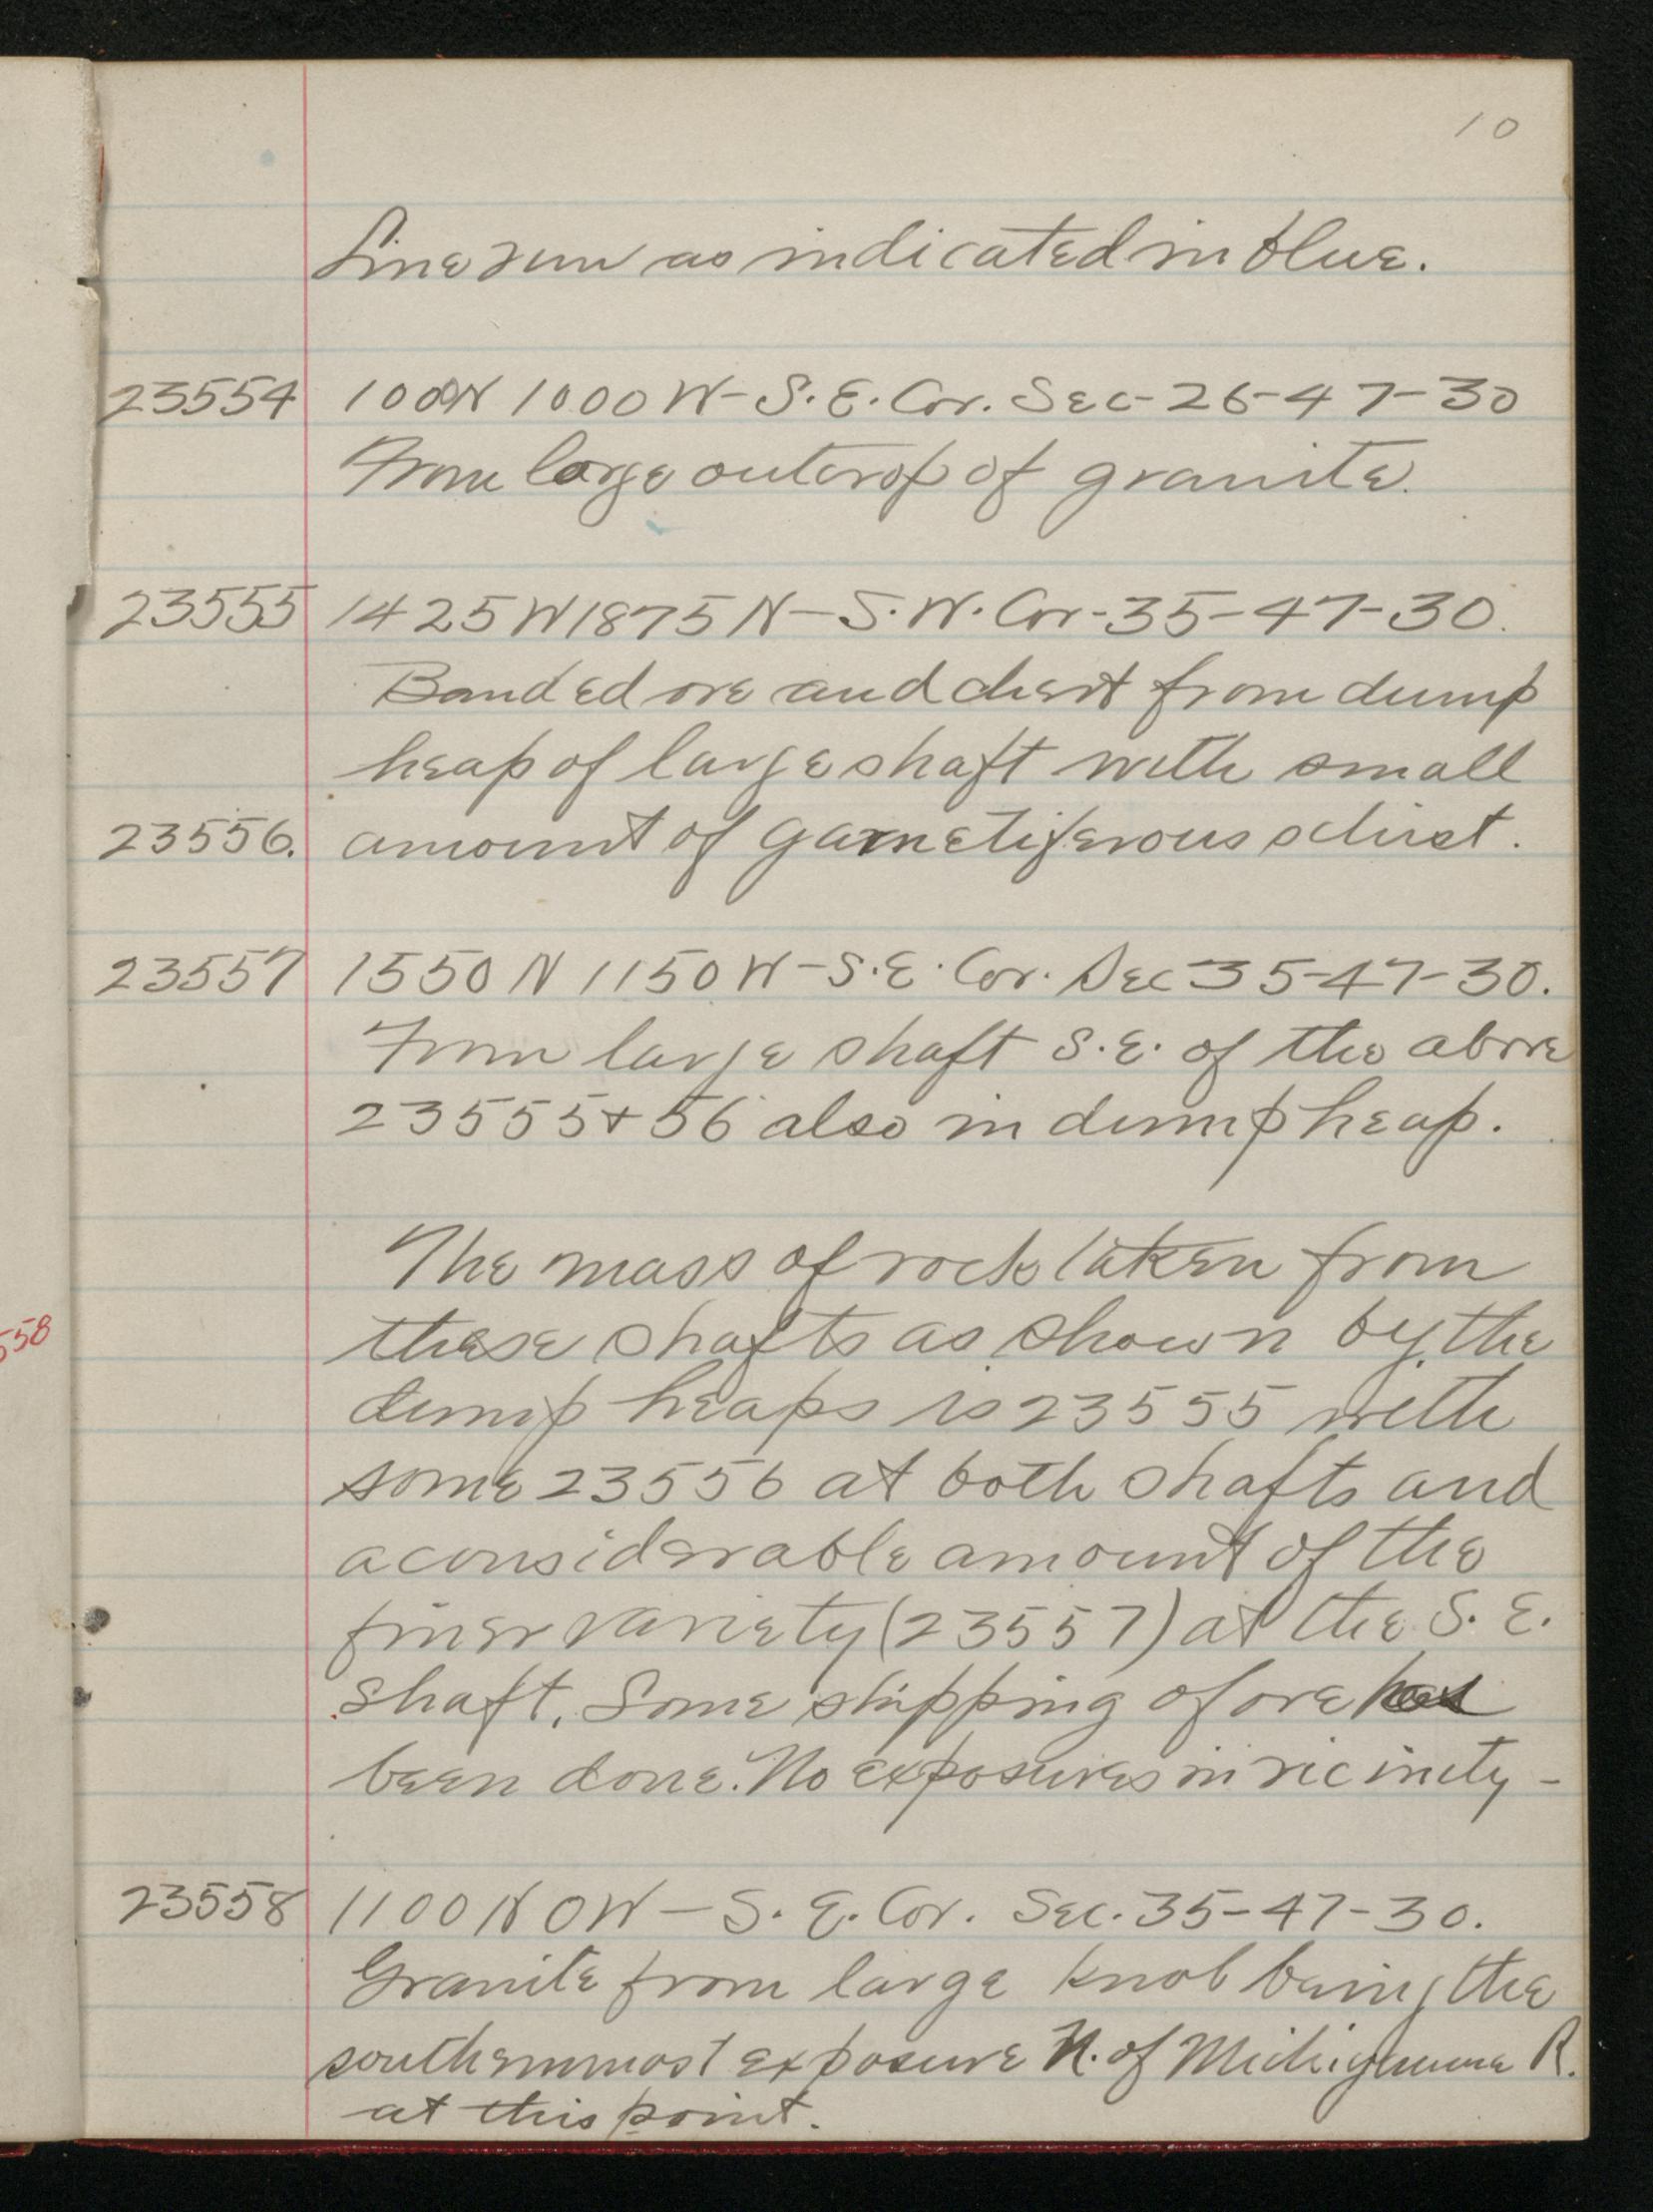 10
Line run as indicated in blue.
23554 100N 1000 W - S. E. Cor. Sec - 26-47-30
From large outcrop of granite.
23555 1425 W 1875 N - S. W. Cor - 35-47-30.
Banded ore and chert from dump
heap of large shaft with small
23556. amount of garnetiferous schist.
23557 1550 N 1150 W - S. E. Cor. Sec 35-47-30.
From large shaft S. E. of the above
23555 + 56 also in dump heap.
The mass of rock taken from
these shafts as shown by the
558
dump heaps is 23555 with
some 23556 at both shafts and
a considerable amount of the
finer variety (23557) at the S. E.
shaft. Some shipping of ore has
been done. No exposures in vicinity -
23558 1100 N 0 W - S. E. Cor. Sec. 35-47-30.
Granite from large knob being the
southernmost exposure N. of Michigamme R.
at this point.